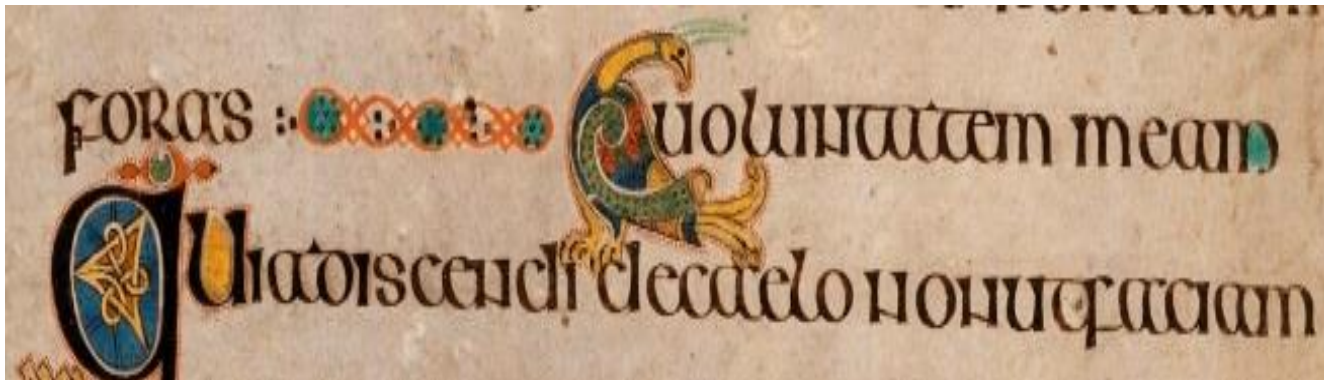 foras : uoluntatem meam
Quia discendi de caelo non ut faciam